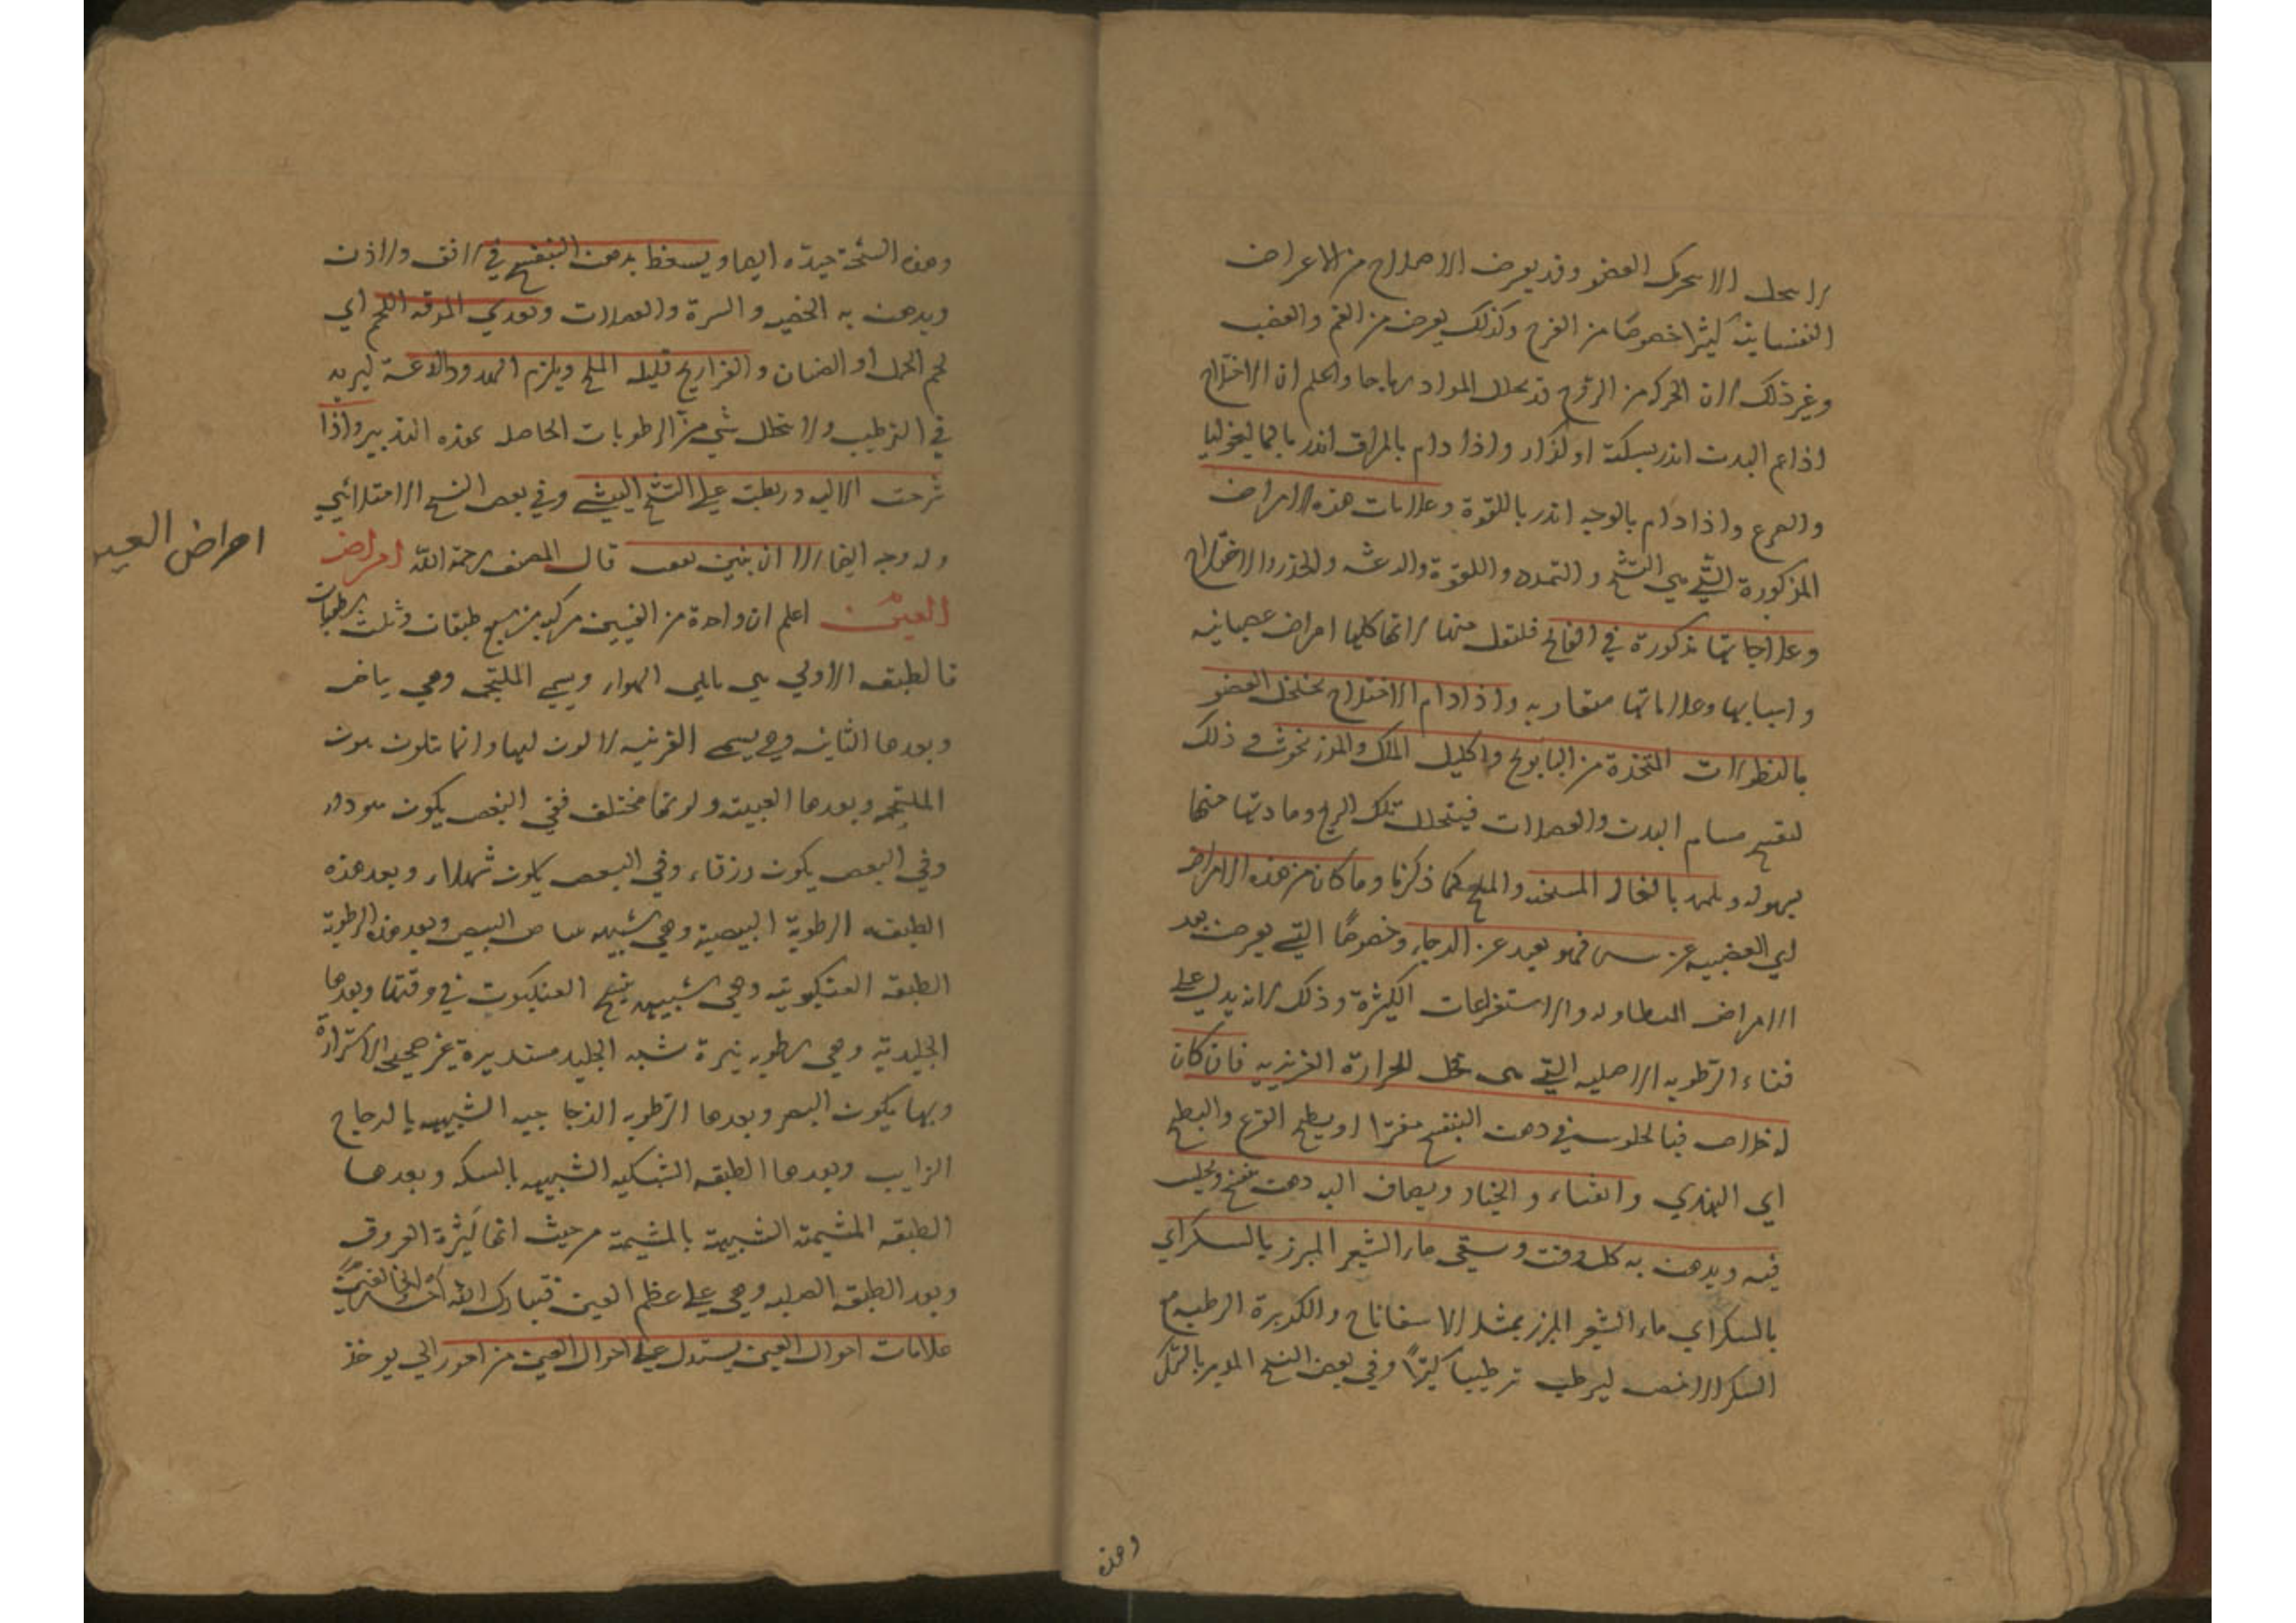 لا يتحلل الا بتحرك العضو وقد يعرض الاختلاج من الاعراض
النفسانية كثيرا خصوصا من الفرح وكذلك يعرض من الغم والغضب
وغير ذلك لان الحركة من الروح قد تحلل المواد رياحا واعلم ان الاختلاج
اذا عم البدن انذر بسكتة او كزاز واذا دام بالمراق انذر بالماليخوليا
والصرع واذا دام بالوجه انذر باللقوة وعلامات هذه الامراض
المذكورة التي هي التشنج والتمدد واللقوة والرعشه والخدر والاختلاج
وعلاجاتها مذكورة في الفالج فلتنقل منها لانها كلها امراض عصبانيه
واسبابها وعلاماتها متقاربه واذا دام الاختلاج بخلخل العضو
بالنطولات المتخذة من البابونج واكليل الملك والمرزنجوش في ذلك
لتفتيح مسام البدن والعضلات فيتحلل تلك الريح ومادتها منها
بسهوله ويكمد بالنخاله المسخنه والملح كما ذكرنا وما كان من هذه الامراض
اي العصبيه عن يبس فهو بعيد عن الرجاء وخصوصًا التي يعرض بعد
الامراض المتطاوله والاستفراغات الكثيرة وذلك لانه يدل على
فناء الرطوبه الاصليه التي هي محل الحرارة الغريزيه فان كان
له خلاص فبالجلوس في دهن البنفسج مفترا او بطبيخ القرع والبطيخ
اي الهندي والقثاء والخيار ويضاف اليه دهن بنفسج ويجلس
فيه ويدهن به كل وقت ويسقى ماء الشعير المبرز بالسكر اي
بالسكر اي ماء الشعير المبرز بمثل الاسفاناخ والكزبرة الرطبه مع
السكر الابيض ليرطب ترطيبا كثيرًا وفي بعض النسخ المدبر بالسكر
وهذه
وهذه النسخة جيدة ايضا ويسعط بدهن البنفسج في الانف والاذن
ويدهن به الخصيه والسرة والعضلات وتغذي المرقه اللحم اي
لحم الحمل او الضان والفراريج قليله الملح ويلزم الهدو والدعة ليزيد
في الترطيب ولا يتحلل شي من الرطوبات الحاصله بهذه التدبير واذا
شرحت الاليه وربطت على التشنج اليبسي وفي بعض النسخ الامتلائي
وله وجه ايضا الا ان بنين نفعت قال المصنف رحمة الله امراض
العين اعلم ان واحدة من العينين مركبه من سبع طبقات وثلث رطوبات
فالطبقه الاولي هي مايلي الهواء ويسمى الملتحمه وهي بياض
وبعدها الثانيه وهي يسمى القرنيه لا لون لها وانما يتلون بلون
الملتحمه وبعدها العنبيه ولونها مختلف ففي البعض يكون سوداء
وفي البعض يكون زرقاء وفي البعض يكون شهلاء وبعد هذه
الطبقه الرطوبة البيضية وهي شبيه ببياض البيض وبعد هذه الرطوبة
الطبقه العنكبوتيه وهي شبيه بنسج العنكبوت في رقتها وبعدها
الجليدية وهي رطوبه نيرة شبه الجليد مستديرة غير صحيحة الاستدارة
وبها يكون البصر وبعدها الرطوبه الزجاجيه الشبيهه بالزجاج
الذايب وبعدها الطبقه الشبكيه الشبيهه بالشبكه وبعدها
الطبقه المشيمة الشبيهة بالمشيمة من حيث انها كثيرة العروق
وبعد الطبقه الصلبه وهي على عظم العين فتبارك الله احسن الخالقين
علامات احوال العين يستدل على احوال العين من امور الي يوخذ
امراض العين